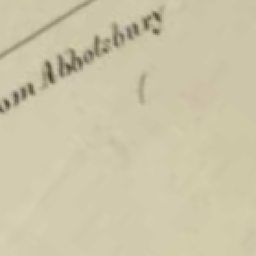 om Abbotzbury